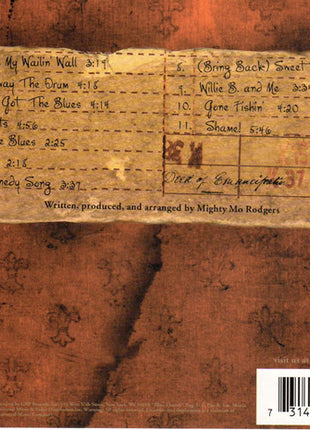 My Wailin' Wall 3:19
way The Drum 4:18
Got The Blues 4:14
ts 4:56
e Blues 2:25
2:18
nedy Song 3:37
8. (Bring Back) Sweet
9. Willie B. and Me 3:
10. Gone Fishin' 4:20
11. Shame! 5:46
37
Deed of Emancipatio
Written, produced, and arranged by Mighty Mo Rodgers
visit us at
7 314